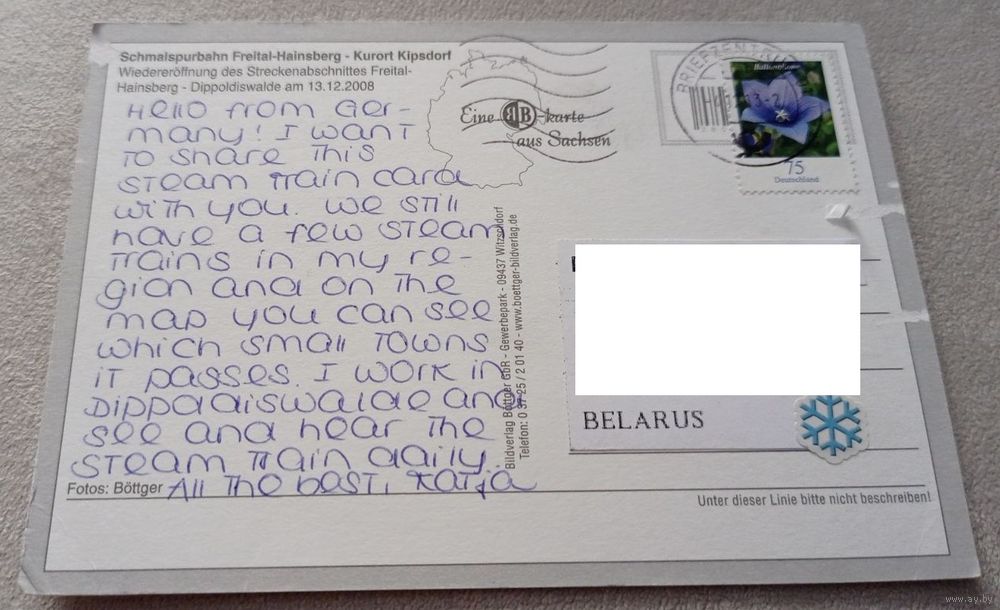 Schmalspurbahn Freital-Hainsberg - Kurort Kipsdorf
Wiedereröffnung des Streckenabschnittes Freital-
Hainsberg - Dippoldiswalde am 13.12.2008
Hello from Ger-
many! I want
to share this
steam train card
with you. We still
have a few steam
trains in my re-
gion and on the
map you can see
which small towns
it passes. I work in
Dippoldiswalde and
see and hear the
steam train daily.
All the best, Katja
Fotos: Böttger
Eine BB-karte
aus Sachsen
Bildverlag Böttger GbR - Gewerbepark - 09437 Witzschdorf
Telefon: 0 37 25 / 2 01 40 - www.boettger-bildverlag.de
BRIEFZENTRUM
Ballonblume
75
Deutschland
BELARUS
Unter dieser Linie bitte nicht beschreiben!
www.ay.by